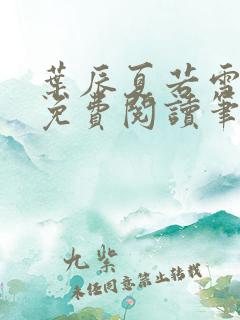 葉辰夏若雪
免費閱讀筆
九紫
未經同意禁止轉載